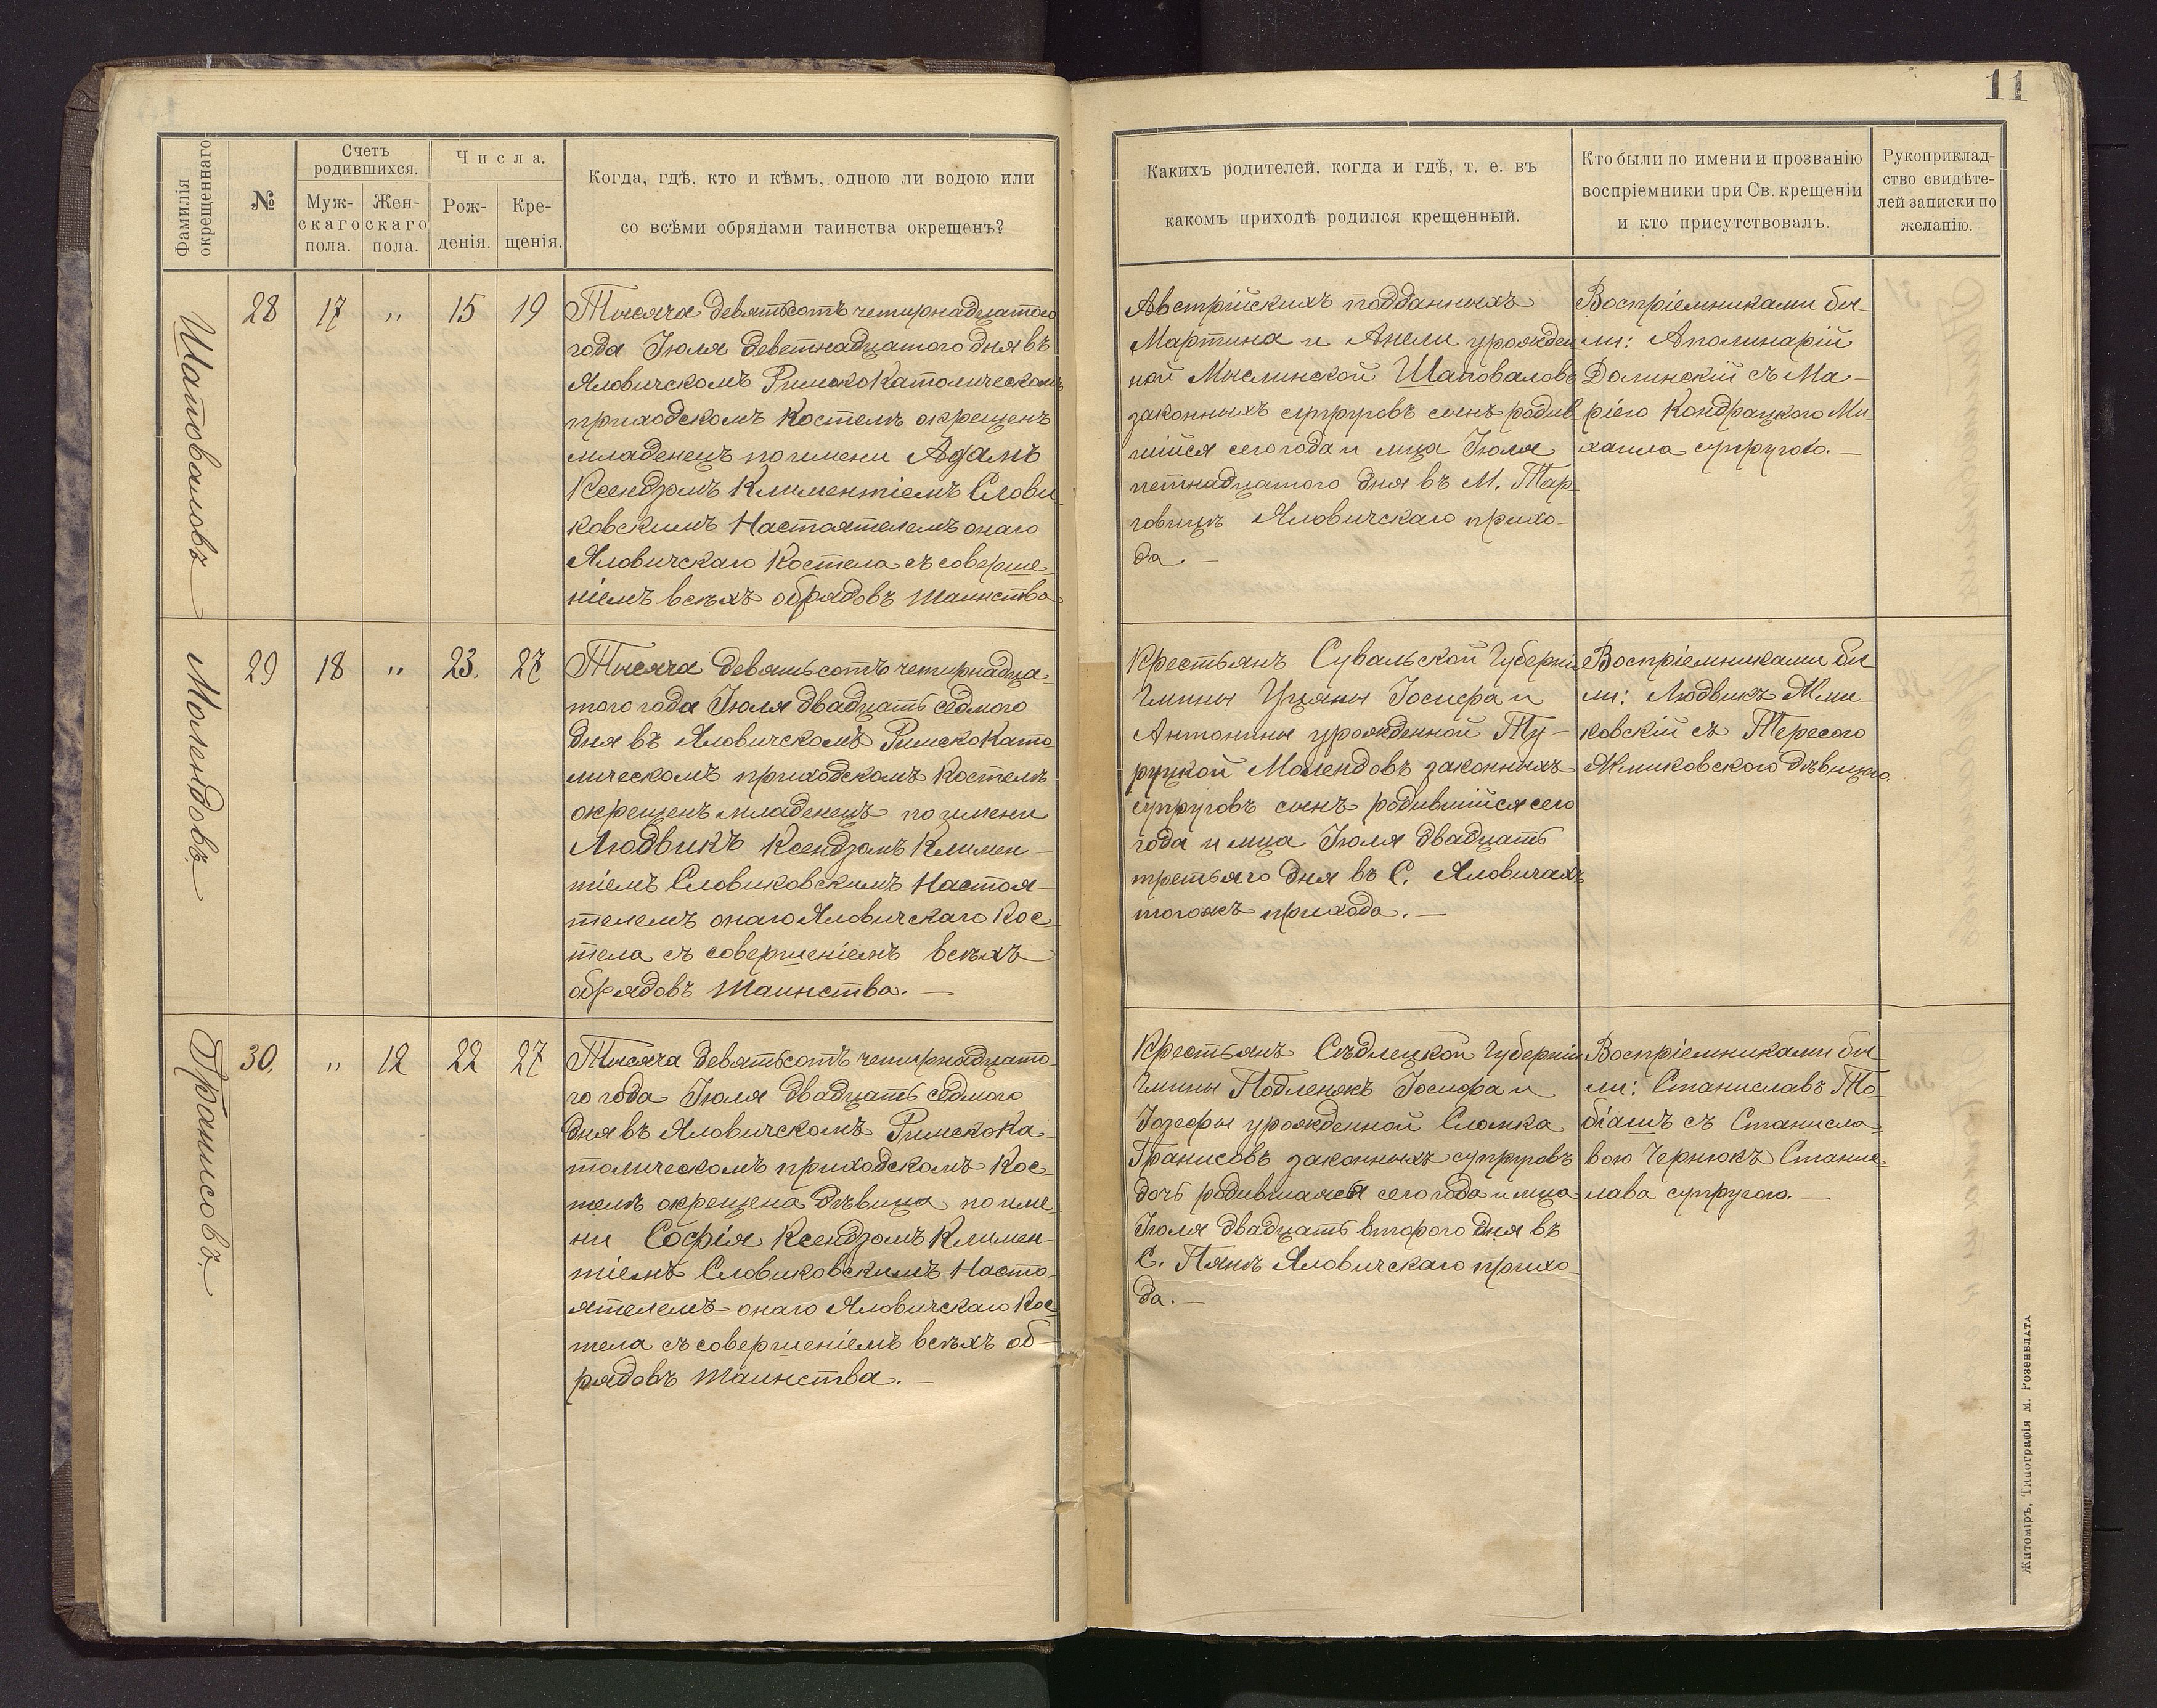 11
Фамилія
окрещеннаго
№
Счетъ
родившихся.
Муж-
скаго
пола.
Жен-
скаго
пола.
Числа.
Рож-
денія.
Кре-
щенія.
Когда, гдѣ, кто и кѣмъ, одною ли водою или
со всѣми обрядами таинства окрещенъ?
Каких​ъ родителей, когда и гдѣ, т. е. въ
какомъ приходѣ родился крещенный.
Кто были по имени и прозванію
воспріемники при Св. крещеніи
и кто присутствовалъ.
Рукоприклад-
ство свидѣте-
лей записки по
желанію.
Шаповаловъ
28 17 " 15 19
Тысяча девятьсотъ четырнадцатого
года Іюля деветнадцатого дня въ
Яловичскомъ Римско Католическомъ
приходскомъ Костелѣ окрещенъ
младенецъ по имени Адамъ
Ксендзомъ Климентіемъ Слови
ковскимъ Настоятелемъ онаго
Яловичскаго Костела съ соверше
ніемъ всѣхъ обрядовъ таинства
Австрійскихъ подданныхъ
Мартина и Анели урожден
ной Мыслинской Шаповаловъ
законныхъ супруговъ сынъ родив
шійся сего года и мца Іюля
петнадцатого дня въ М. Тар-
говицѣ Яловичскаго прихо-
да. —
Воспріемниками бы-
ли: Аполинарій
Долинскій съ Ма-
ріею Кондрацкого Ми
хаила супругою. —
Молендовъ
29 18 " 23. 27
Тысяча девятьсотъ четырнадца-
того года Іюля двадцать седмого
дня въ Яловичскомъ Римско Като
лическомъ приходскомъ Костелѣ
окрещенъ младенецъ по имени
Людвикъ Ксендзомъ Климен-
тіемъ Словиковскимъ Настоя-
телемъ онаго Яловичскаго Кос
тела съ совершеніемъ всѣхъ
обрядовъ таинства. —
Крестьянъ Сувальской Губерніи
Гмины Іосифа и
Антонины урожденной Ту-
руцкой Молендовъ законныхъ
супруговъ сынъ родившійся сего
года и мца Іюля двадцать
третьяго дня въ С. Яловичахъ
тогожъ прихода. —
Воспріемниками бы
ли: Людвикъ Жми-
ковскій съ Тересою
Жмиковскою дѣвицею.
Гранисовъ.
30. " 12 22 27
Тысяча девятьсотъ четырнадцато
го года Іюля двадцать седмого
дня въ Яловичскомъ Римско Ка-
толическомъ приходскомъ Кос-
телѣ окрещена дѣвица по име
ни Софія Ксендзомъ Климен-
тіемъ Словиковскимъ Насто-
ятелемъ онаго Яловичскаго Кос
тела съ совершеніемъ всѣхъ об-
рядовъ таинства. —
Крестьянъ Сѣдлецкой Губерніи
Гмины Подленякъ Іосифа и
Іозефы урожденной Сломка
Гранисовъ законныхъ супруговъ
дочь родившаяся сего года и мца
Іюля двадцать второго дня въ
С. Пянѣ Яловичскаго прихо-
да. —
Воспріемниками бы-
ли: Станиславъ То-
біашъ съ Станисла-
вою Чернюкъ Станис-
лава супругою. —
Житоміръ, Типографія М. Розенблата